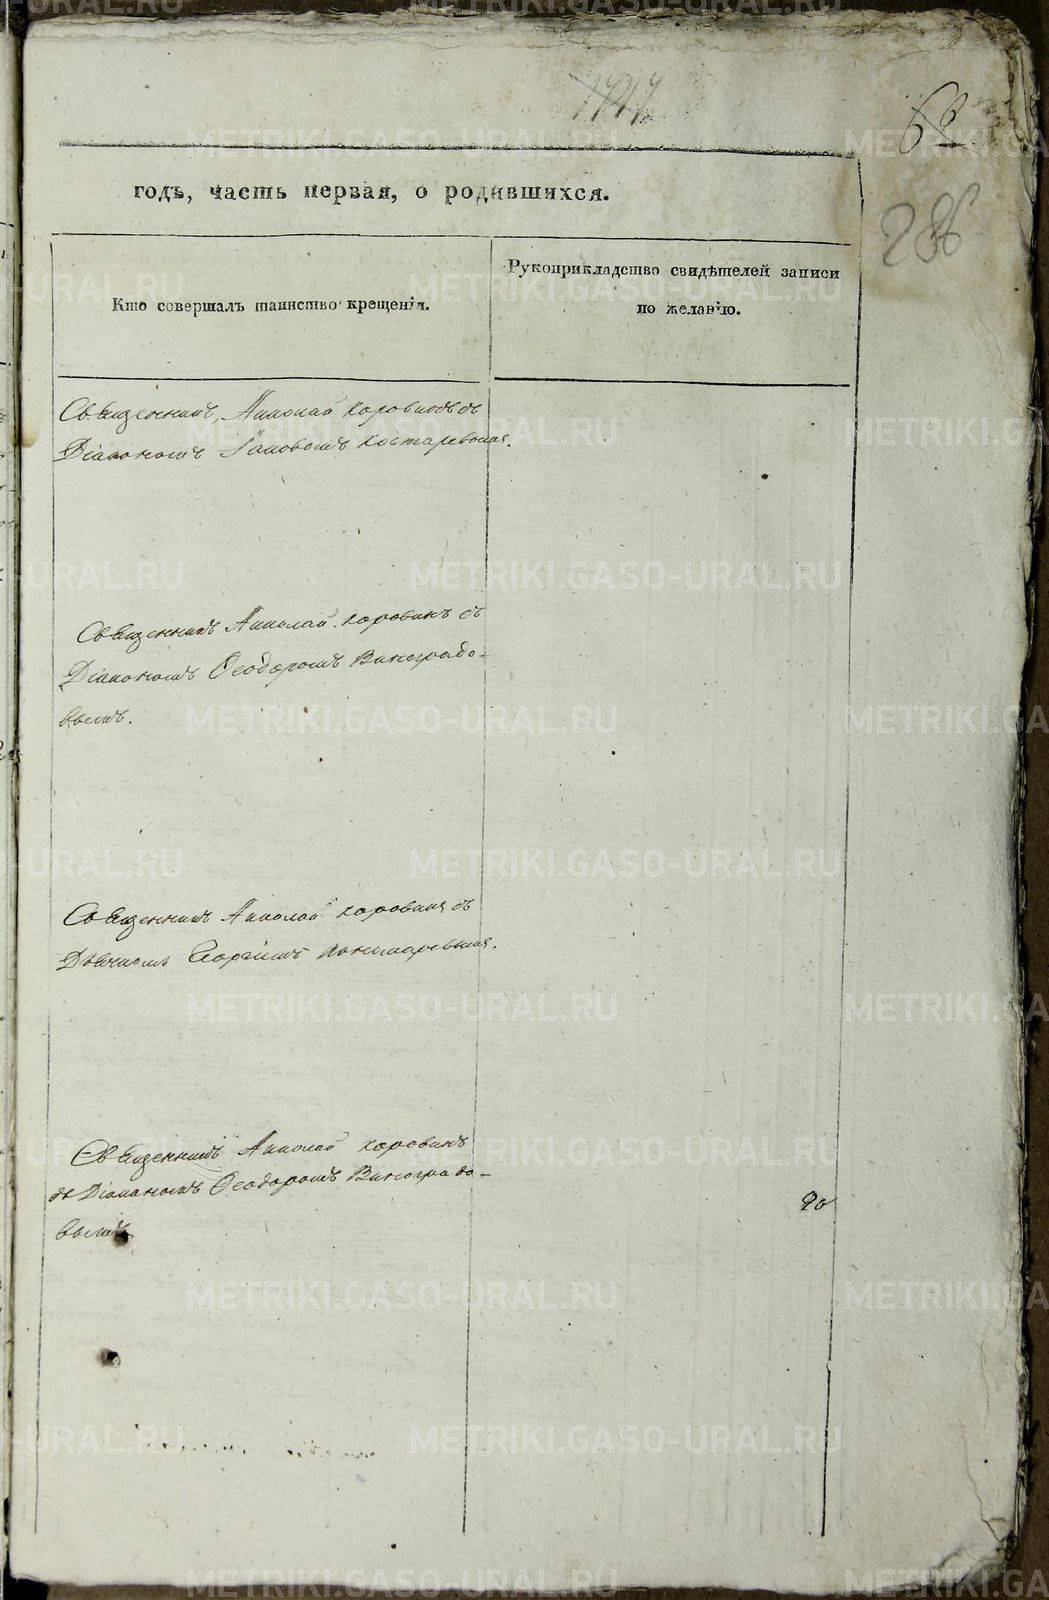 63
286
годъ, часть первая, о родившихся.
Кто совершалъ таинство крещенія.
Рукоприкладство свидѣтелей записи
по желанію.
Священникъ Николай Коровинъ съ
Діакономъ Іаковомъ Костаревымъ.
Священникъ Николай Коровинъ съ
Діакономъ Ѳеодоромъ Виноградо-
вымъ.
Священникъ Николай Коровинъ съ
Дьячкомъ Георгіемъ Пономаревымъ.
Священникъ Николай Коровинъ
съ Діакономъ Ѳеодоромъ Виноградо-
вымъ
METRIKI.GASO-URAL.RU